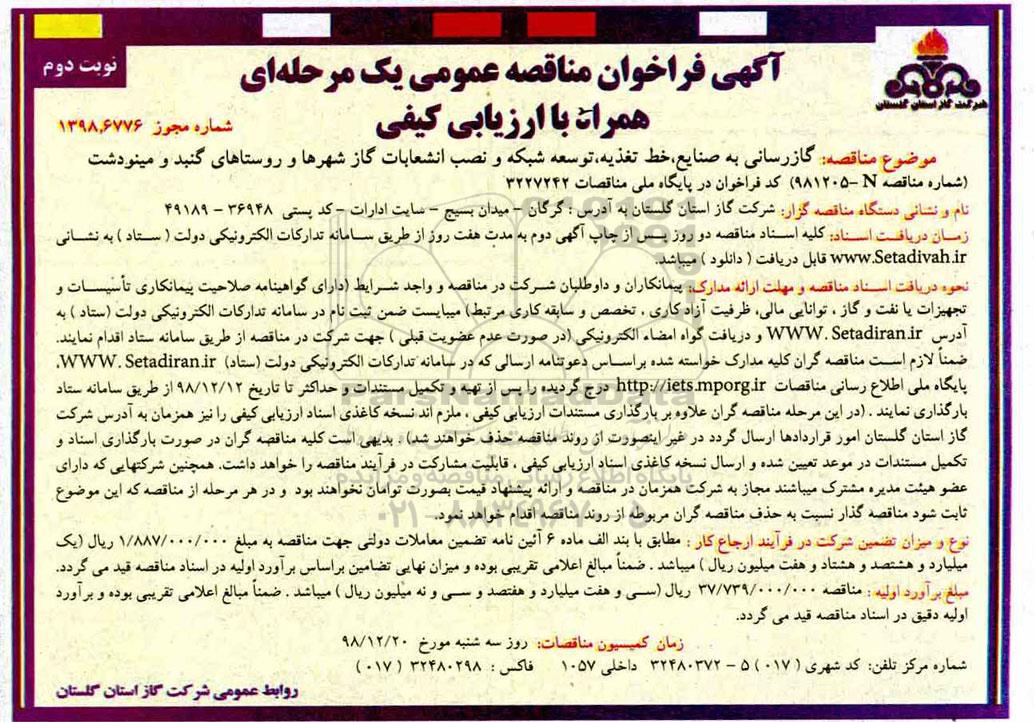 نوبت دوم
آگهی فراخوان مناقصه عمومی یک مرحله‌ای
همراه با ارزیابی کیفی
شرکت گاز استان گلستان
شماره مجوز ۱۳۹۸,۶۷۷۶
موضوع مناقصه: گازرسانی به صنایع،خط تغذیه،توسعه شبکه و نصب انشعابات گاز شهرها و روستاهای گنبد و مینودشت
(شماره مناقصه N -۹۸۱۲۰۵) کد فراخوان در پایگاه ملی مناقصات ۳۲۲۷۲۴۲
نام و نشانی دستگاه مناقصه گزار: شرکت گاز استان گلستان به آدرس : گرگان - میدان بسیج - سایت ادارات - کد پستی ۳۶۹۴۸ - ۴۹۱۸۹
زمـان دریافـت اسـناد: کلیه اسـناد مناقصه دو روز پـس از چاپ آگهی دوم به مدت هفت روز از طریق سـامانه تدارکات الکترونیکی دولت ( سـتاد ) به نشـانی
www.Setadivah.ir قابل دریافت ( دانلود ) میباشد.
نحوه دریافت اسـناد مناقصه و مهلت ارائه مدارک: پیمانکاران و داوطلبان شـرکت در مناقصه و واجد شـرایط (دارای گواهینامه صلاحیت پیمانکاری تأسیسـات و
تجهیزات یا نفت و گاز ، توانایی مالی، ظرفیت آزاد کاری ، تخصص و سابقه کاری مرتبط) میبایست ضمن ثبت نام در سامانه تدارکات الکترونیکی دولت (ستاد ) به
آدرس WWW. Setadiran.ir و دریافت گواه امضاء الکترونیکی (در صورت عدم عضویت قبلی ) جهت شرکت در مناقصه از طریق سامانه ستاد اقدام نمایند.
ضمناً لازم اسـت مناقصه گران کلیه مدارک خواسته شده براسـاس دعوتنامه ارسالی که در سامانه تدارکات الکترونیکی دولت (ستاد) WWW. Setadiran.ir،
پایگاه ملی اطلاع رسانی مناقصات http://iets.mporg.ir درج گردیده را پس از تهیه و تکمیل مستندات و حداکثر تا تاریخ ۹۸/۱۲/۱۲ از طریق سامانه ستاد
بارگذاری نمایند . (در این مرحله مناقصه گران علاوه بر بارگذاری مستندات ارزیابی کیفی ، ملزم اند نسخه کاغذی اسناد ارزیابی کیفی را نیز همزمان به آدرس شرکت
گاز استان گلستان امور قراردادها ارسال گردد در غیر اینصورت از روند مناقصه حذف خواهند شد) . بدیهی است کلیه مناقصه گران در صورت بارگذاری اسناد و
تکمیل مستندات در موعد تعیین شده و ارسال نسخه کاغذی اسناد ارزیابی کیفی ، قابلیت مشارکت در فرآیند مناقصه را خواهد داشت. همچنین شرکتهایی که دارای
عضو هیئت مدیره مشترک میباشند مجاز به شرکت همزمان در مناقصه و ارائه پیشنهاد قیمت بصورت توامان نخواهند بود و در هر مرحله از مناقصه که این موضوع
ثابت شود مناقصه گذار نسبت به حذف مناقصه گران مربوطه از روند مناقصه اقدام خواهد نمود.
نوع و میزان تضمین شرکت در فرآیند ارجاع کار : مطابق با بند الف ماده ۶ آئین نامه تضمین معاملات دولتی جهت مناقصه به مبلغ ۱/۸۸۷/۰۰۰/۰۰۰ ریال (یک
میلیارد و هشتصد و هشتاد و هفت میلیون ریال ) میباشد . ضمناً مبالغ اعلامی تقریبی بوده و میزان نهایی تضامین براساس برآورد اولیه در اسناد مناقصه قید می گردد.
مبلغ برآورد اولیه : مناقصه ۳۷/۷۳۹/۰۰۰/۰۰۰ ریال (سـی و هفت میلیارد و هفتصد و سـی و نه میلیون ریال ) میباشد . ضمناً مبالغ اعلامی تقریبی بوده و برآورد
اولیه دقیق در اسناد مناقصه قید می گردد.
زمان کمیسیون مناقصات: روز سه شنبه مورخ ۹۸/۱۲/۲۰
شماره مرکز تلفن: کد شهری ( ۰۱۷ ) ۵ - ۳۲۴۸۰۳۷۲ داخلی ۱۰۵۷ فاکس : ۳۲۴۸۰۲۹۸ ( ۰۱۷ )
روابط عمومی شرکت گاز استان گلستان
ParsNamadData
پایگاه اطلاع رسانی مناقصه و مزایده
۰۲۱-۸۸۳۴۹۶۷۰-۵